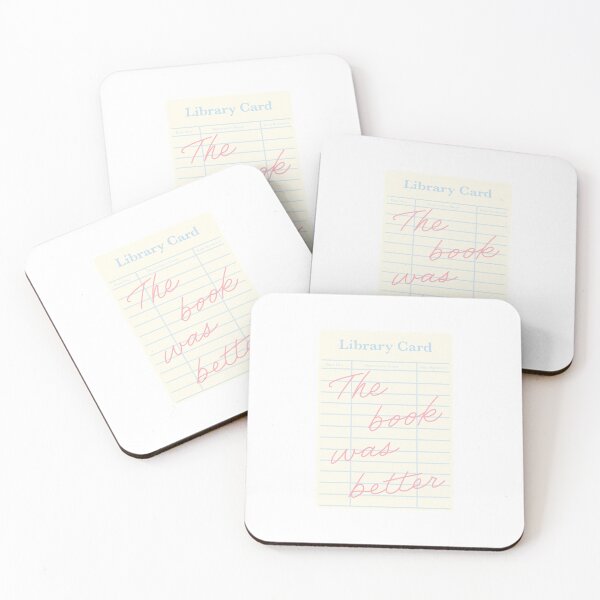 Library Card
The
book
Library Card
The
book
was
Library Card
The
book
was
better
Library Card
The
book
was
better